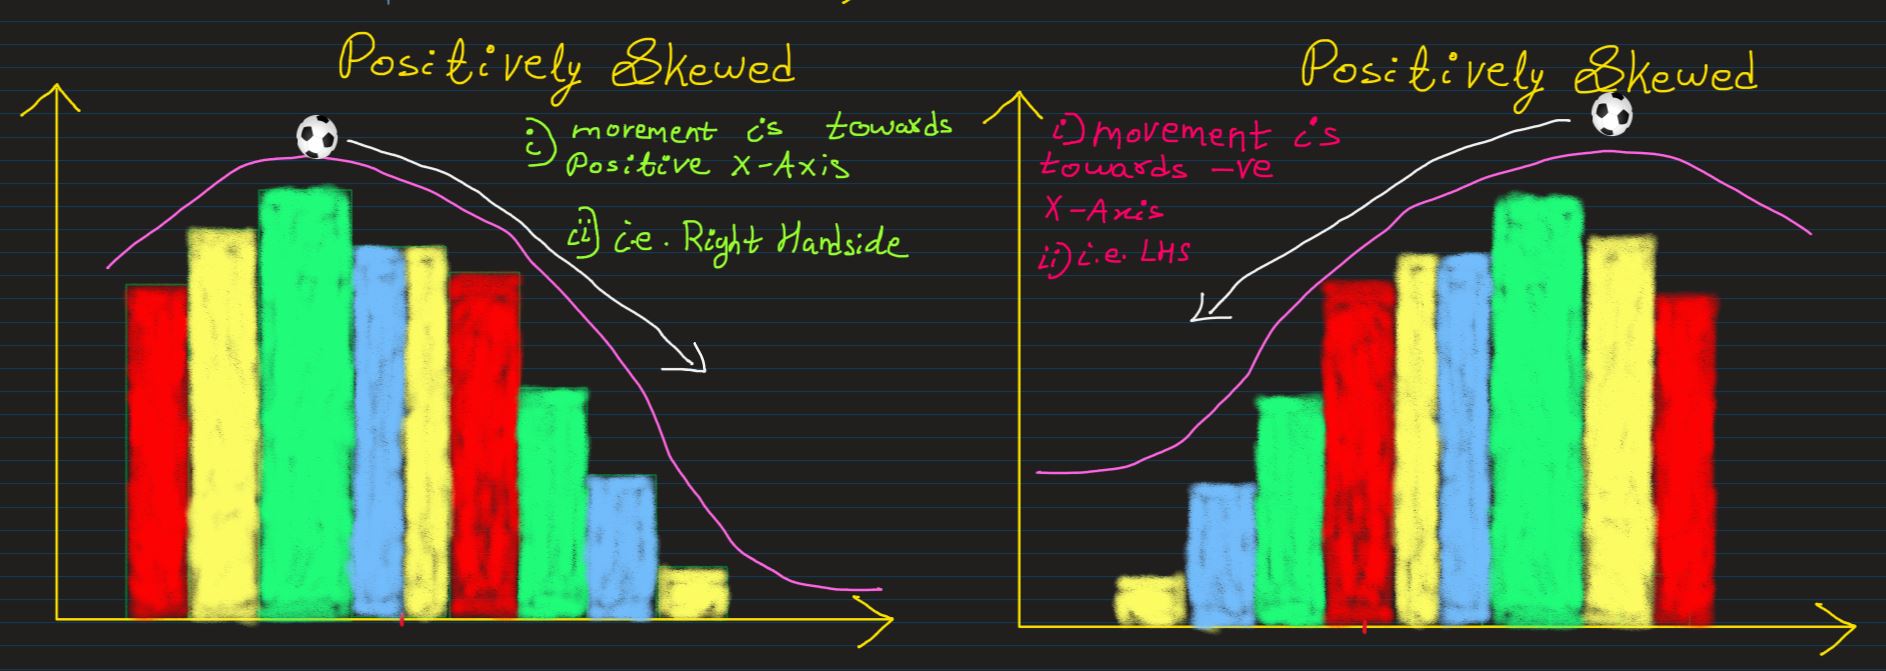 Positively Skewed
i) movement is towards
Positive X-Axis
ii) i.e. Right Handside
Positively Skewed
i) movement is
towards -ve
X-Axis
ii) i.e. LHS